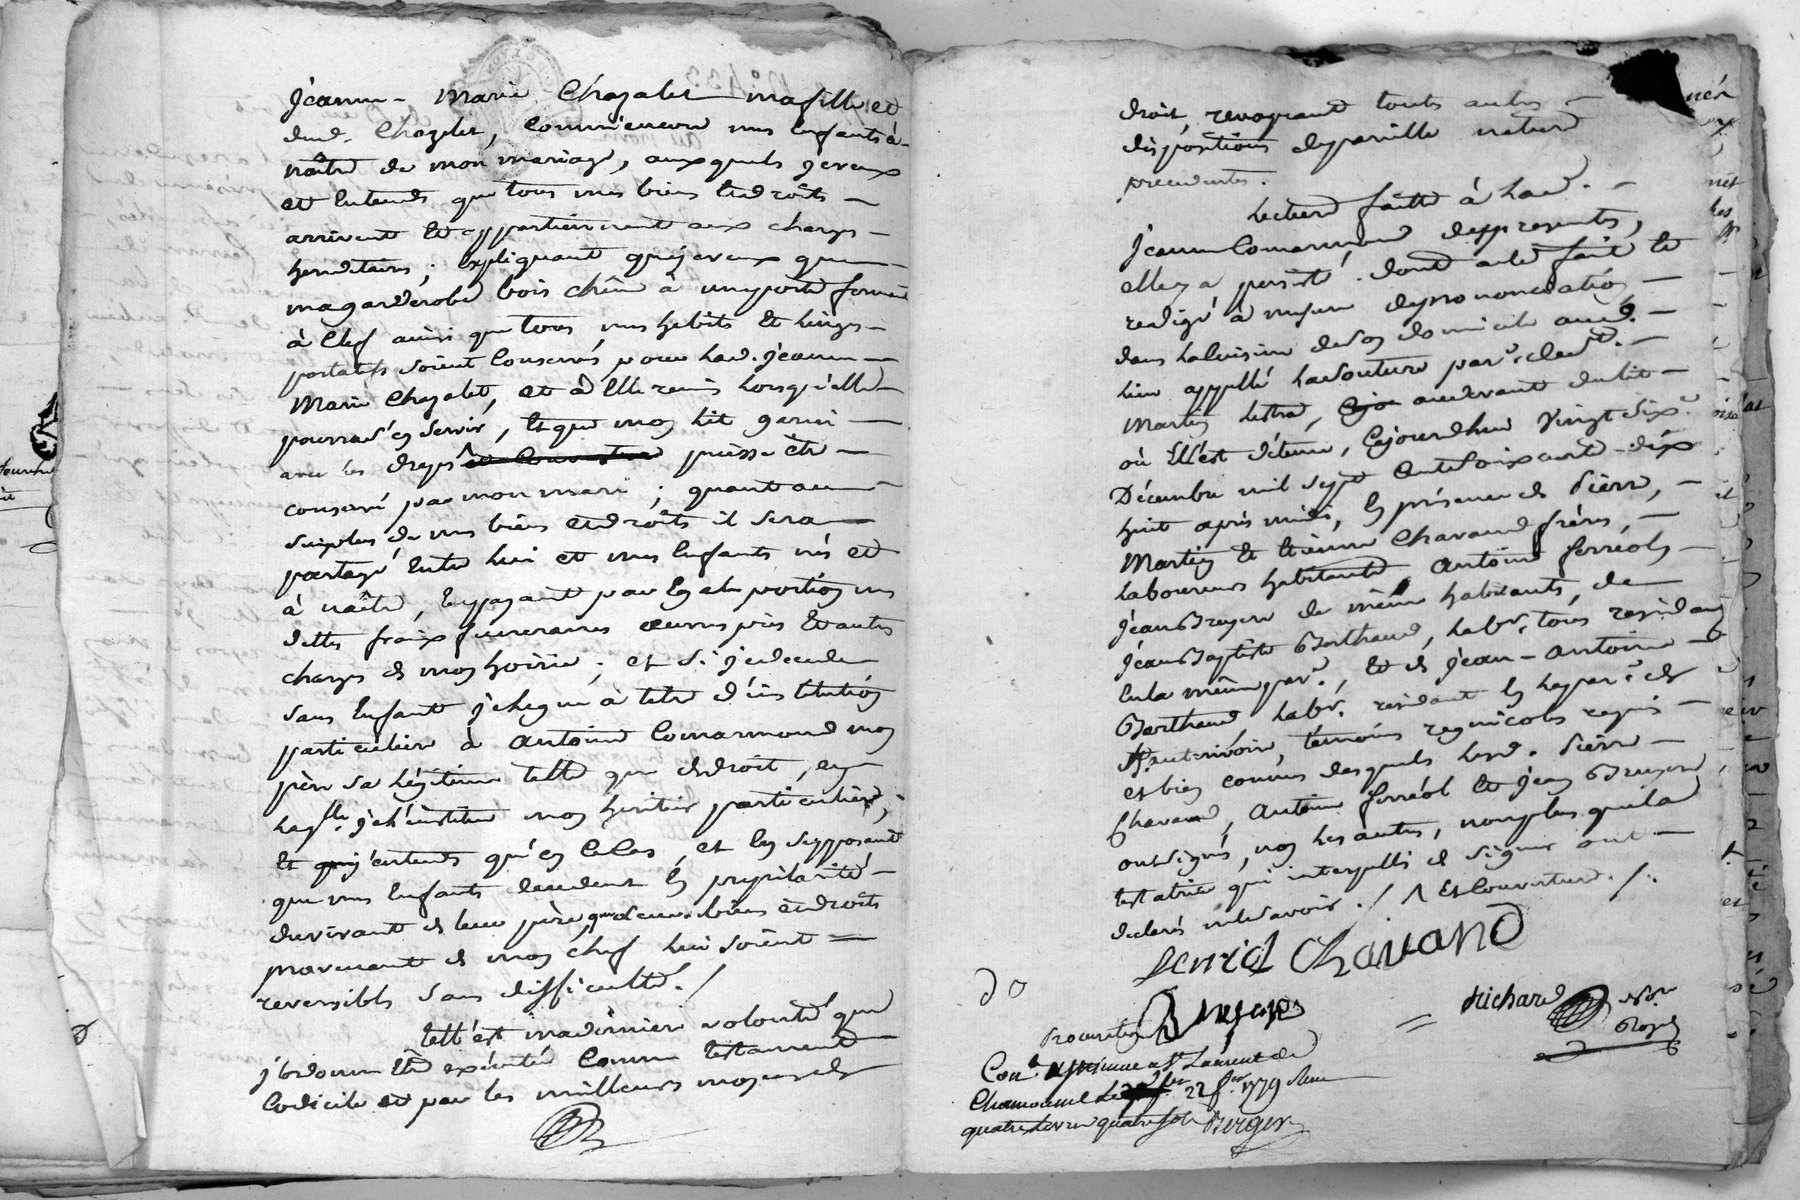 Jeanne-Marie Chazalet ma fille et
dud. Chazelet, comm'encore mes Enfants à
naître de mon mariage, auxquels je veux
et Entends que tous mes biens Et droits
arrivent Et appartiennent aux charges
hereditaires; Expliquant que je veux que
ma garderobe bois chêne à une porte fermé
à Clef ainsi que tous mes habits Et Linges
portatifs soient Conservés pour lad. jeanne
Marie Chazalet, et à Elle remis Lorsqu'elle
pourra s'en servir, Et que mon Lit garni
avec les draps puisse être
conservé par mon mari; quant au
surplus de mes biens et droits il sera
partagé Entre lui et mes Enfants nés et
à naître, En payant par Egale portion mes
dettes fraix funeraires œuvres pies Et autres
charges de mon hoirie; et si je decede
sans Enfants je legue à titre d'institution
particuliere à Antoine Comarmond mon
père sa Légitime telle que de droit, en
laqlle. je l'institue mon heritier particulier,
Et j'entends qu'en ce Cas, et En supposant
que mes Enfants decedent En pupilarité
du vivant de leur père que leurs biens et droits
provenant de mon chef lui soient
reversibles sans difficulté./
telle est ma dernière volonté que
j'ordonne Etre exécutée Comme testament
Codicile et par les meilleurs moyens de
droit, revoquant toutes autres
dispositions de pareille nature
precedentes.
Lecture faitte à lad.
Jeanne Comarmond des presents,
elle y a persisté. dont acte fait Et
redigé à mesure de prononciation
dans la Cuisine de son domicile aud.
lieu appellé par.e dud. St.
Martin Lestra, au devant du lit
où Ell'est détenue, Cejourdhui Vingt Six.e
Décembre mil sept Cent Soixante-dix
huit après midi, En présence de Pierre,
Martin Et Etienne Chavand frères,
Laboureurs habitants Antoine ferréol,
Jean Bruyere de même habitants, de
Jean Baptiste Berthaud, Labr. tous residants
En la même par.e, Et de Jean-Antoine
Berthaud Labr. residant En la par.e de
hauterivoire, temoins regnicoles requis
et bien connus desquels Lesd. Pierre
Chavand, Antoine ferréol Et Jean Bruyere
ont signés, non les autres, non plus que la
testatrice qui interpellés de signer ont
declarés ne le savoir./. ^ Et Couverture./.
Ferriol Chavand
Bruyere
Richard
Con.lé
Chamousset 22 1779
quatre livres quatre sols Berger